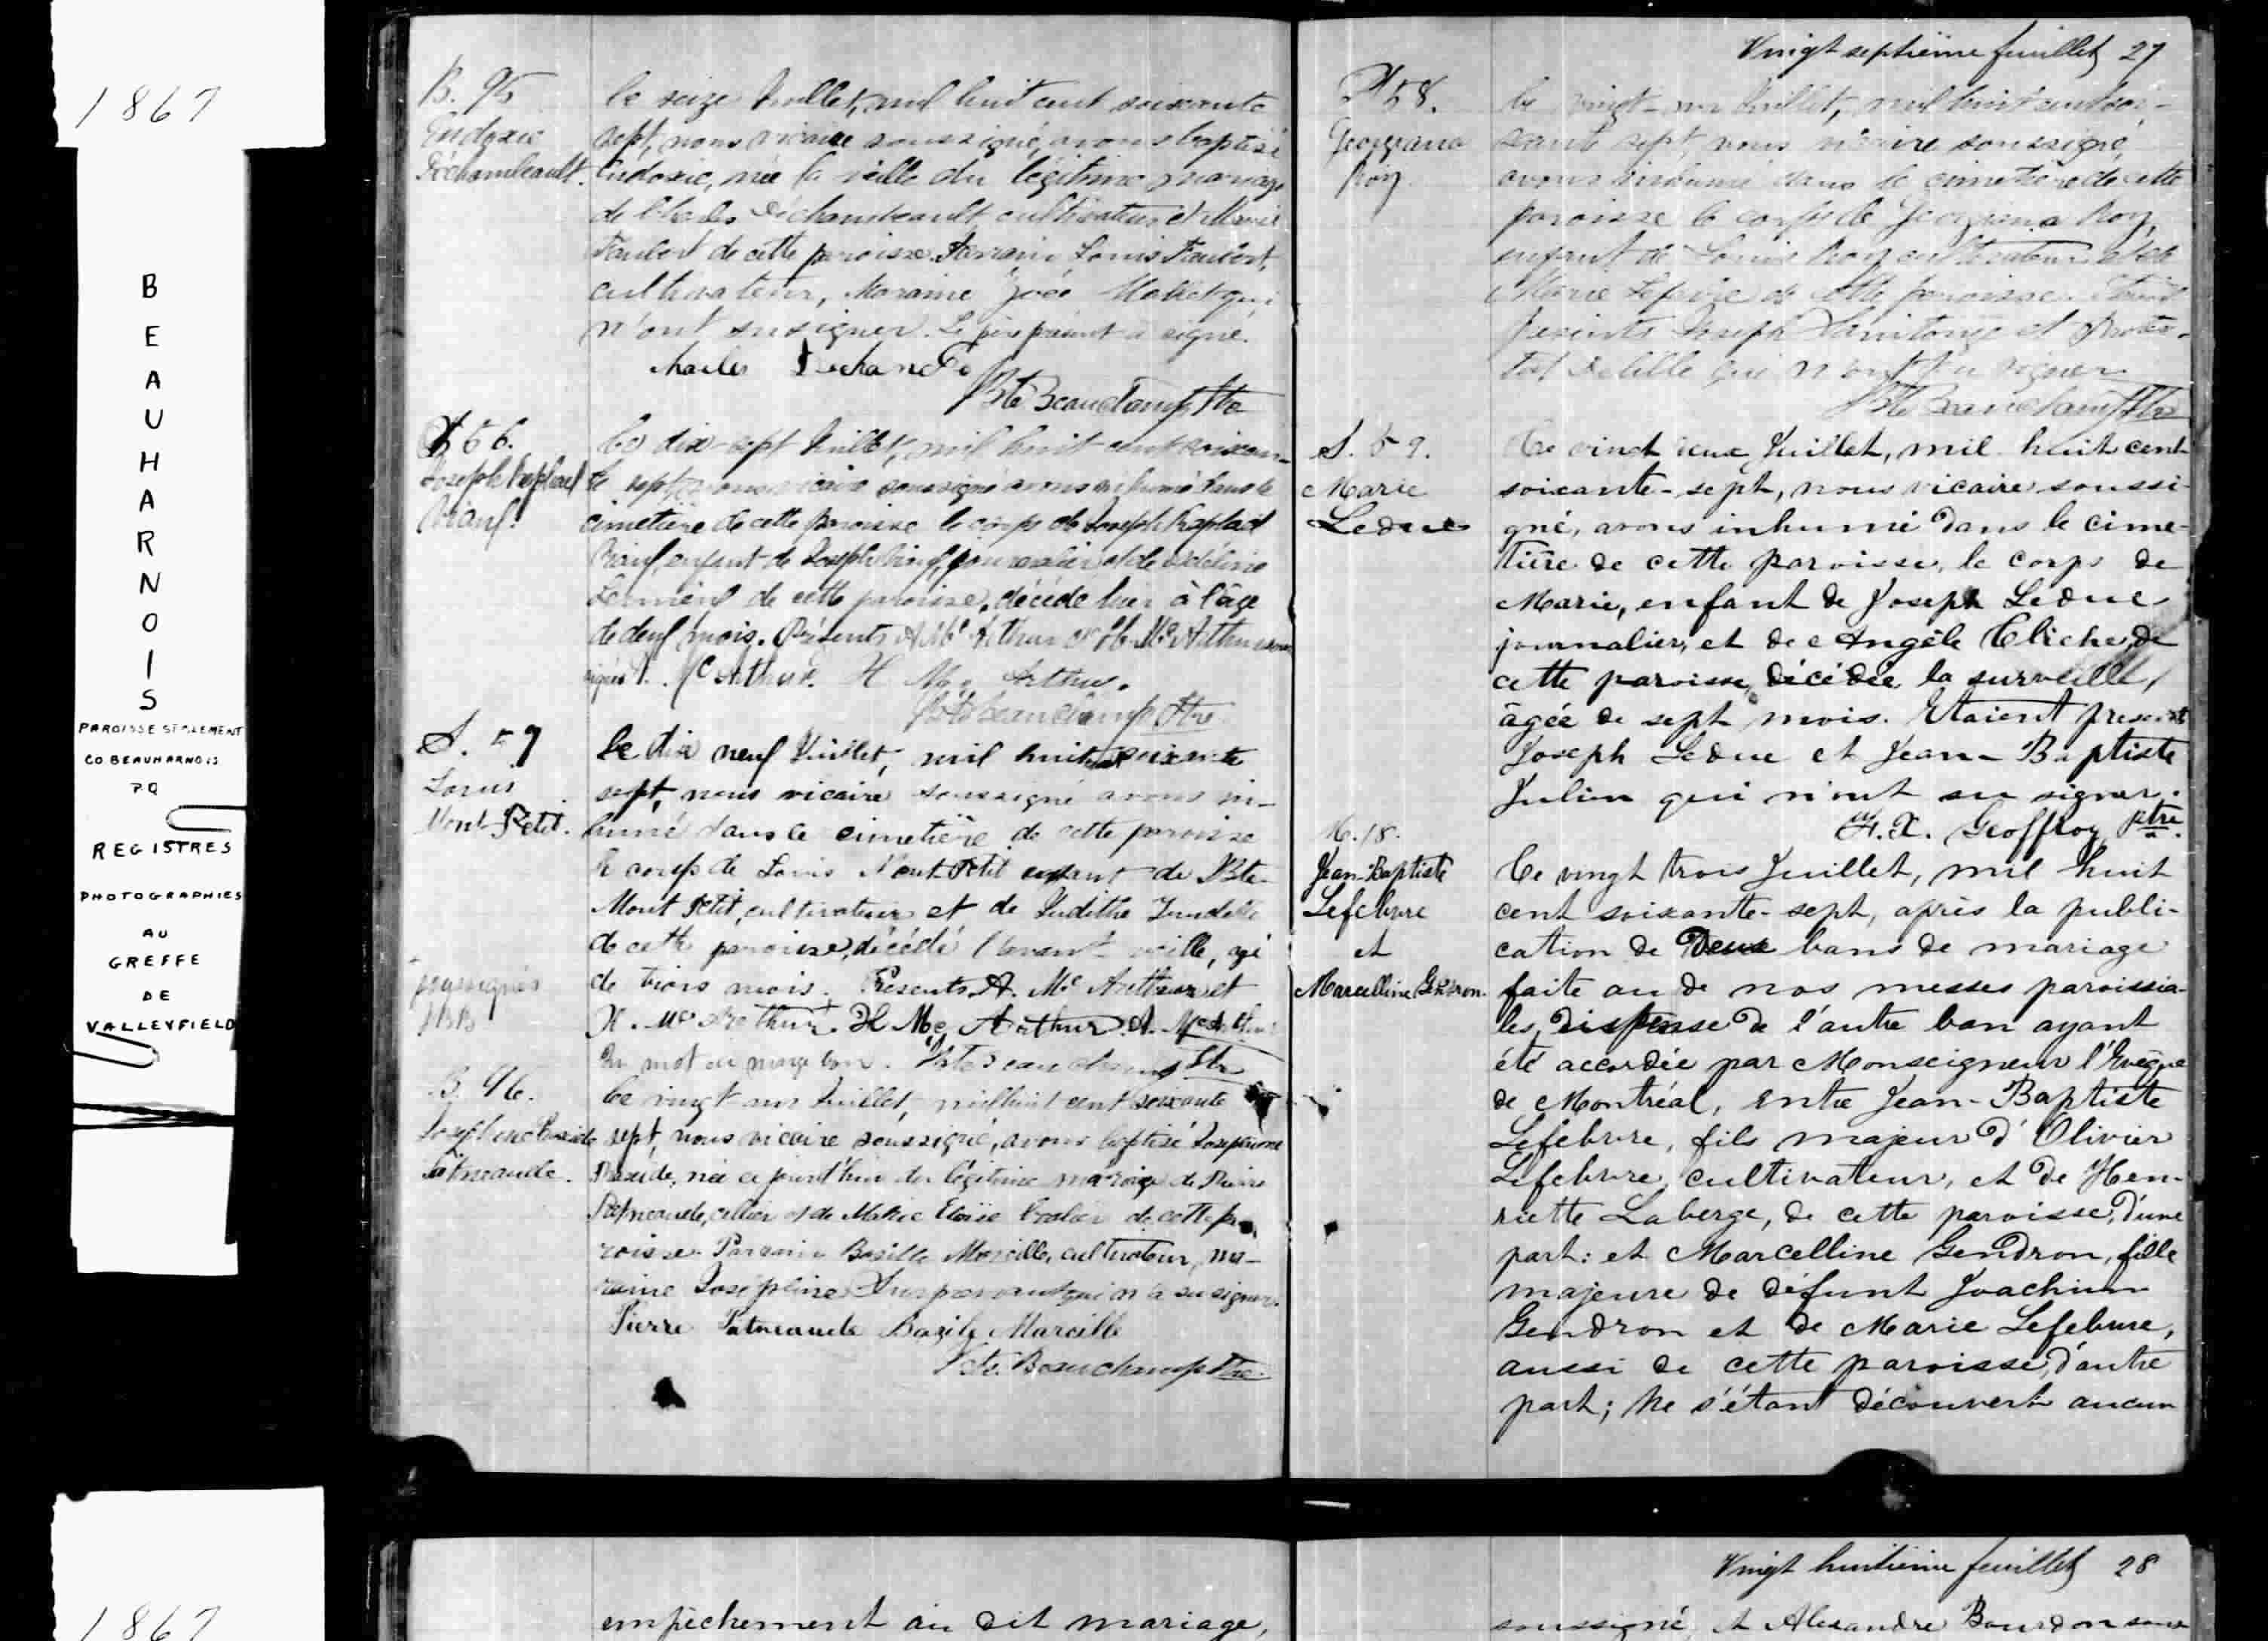 1867
BEAUHARNOIS
PAROISSE SEULEMENT
CO. BEAUHARNOIS
P.Q
REGISTRES
PHOTOGRAPHIES
AU
GREFFE
DE
VALLEYFIELD
B. 95
Eudoxie
Déchambeault.
Le seize Juillet, mil huit cent soixante
sept, nous vicaire soussigné, avons baptisé
Eudoxie, née la veille du légitime mariage
de Charles Déchambeault cultivateur et Marie
Faubert de cette paroisse. Parrain Louis Faubert,
cultivateur, Maraine Zoé qui
n'ont su signer. Le père présent a signé.
Charles
Bte Beauchamp Ptre
S 56.
Joseph Raphael
Le dix-sept Juillet, mil huit-cent soixan-
te sept, nous vicaire soussigné avons inhumé dans le
cimetière de cette paroisse le corps de Joseph Raphael
enfant de Joseph journalier et de
de cette paroisse, décédé hier à l'âge
de deux mois. Présents A Mc Arthur et H. Mc Arthur
signés. Mc Arthur. H Mc Arthur.
Bte Beauchamp Ptre
S. 57
Louis
Mont-Petit.
Le dix neuf Juillet, mil huit soixante
sept, nous vicaire soussigné avons in-
humé dans le cimetière de cette paroisse
le corps de Louis Mont-Petit enfant de Bte
Mont Petit, cultivateur et de Judithe
de cette paroisse, décédé l'avant-veille, agé
de trois mois. Présents A. Mc Arthur et
H. Mc Arthur. H Mc Arthur. A. Mc Arthur
soussignés
JBB
Un mot en marge bon. Bte Beauchamp Ptre
B. 96.
Josephine
Patneaude.
Le vingt-un Juillet, mil huit cent soixante
sept, nous vicaire soussigné, avons baptisé Josephine
née ce jourd'hui du légitime mariage de Pierre
Patneaude, sellier et de Marie de cette pa
roisse. Parrain Basile Marcille, cultivateur, ma-
raine Joséphine qui n'a su signer.
Pierre Patneaude Bazile Marcille
Bte. Beauchamp Ptre.
Vingt septième feuillet 27
S 58.
Georgiana
Roy.
Le vingt-un Juillet, mil huit cent soi-
xante sept, nous vicaire soussigné,
avons inhumé dans le cimetière de cette
paroisse le corps de Georgiana Roy,
enfant de Louis Roy cultivateur et de
Marie Lefebvre de cette paroisse. Etaient
présents Joseph et
qui n'ont pu signer
Bte Beauchamp Ptre
S. 59.
Marie
Leduc
Le vingt deux Juillet, mil huit cent
soixante-sept, nous vicaire soussi-
gné, avons inhumé dans le cime-
tière de cette paroisse, le corps de
Marie, enfant de Joseph Leduc
journalier, et de Angèle Cliche, de
cette paroisse, décédée la surveille,
âgée de sept mois. Etaient présents
Joseph Leduc et Jean-Baptiste
Julien qui n'ont su signer.
F. X. Geoffroy ptre.
M. 18.
Jean-Baptiste
Lefebvre
et
Marcelline Gendron.
Le vingt trois Juillet, mil huit
cent soixante-sept, après la publi-
cation de Deux bans de mariage
faite au de nos messes paroissia-
les, Dispense de l'autre ban ayant
été accordée par Monseigneur l'Evêque
de Montréal, entre Jean-Baptiste
Lefebvre, fils majeur d'Olivier
Lefebvre, cultivateur, et de Hen-
riette Laberge, de cette paroisse, d'une
part: et Marcelline Gendron, fille
majeure de défunt Joachim
Gendron et de Marie Lefebvre,
aussi de cette paroisse, d'autre
part; Ne s'étant découvert aucun
1867
empêchement au dit mariage,
Vingt huitième feuillet 28
soussigné, et Alexandre Bourdon